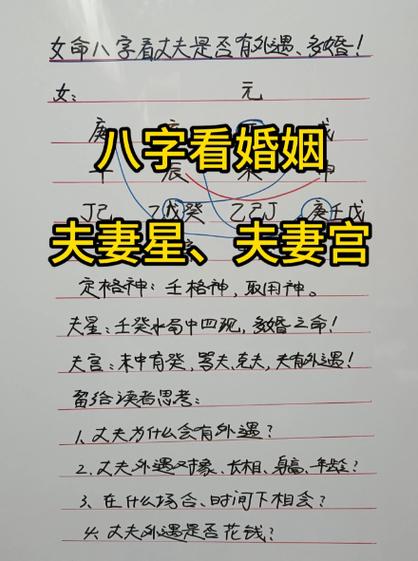 女命八字看丈夫是否有外遇、多婚!
女: 元
庚
八字看婚姻
辰
丁己 乙戊癸 乙己丁 庚壬戊
夫妻星、夫妻宫
定格神:壬格神,取用神。
夫星:壬癸水局中四现,多婚之命!
夫宫:未中有癸,夫,克夫,夫有外遇!
留给读者思考:
1、丈夫为什么会有外遇?
2、丈夫外遇对象、长相、身高、年龄?
3、在什么场合、时间下相会?
4、丈夫外遇是否花钱?